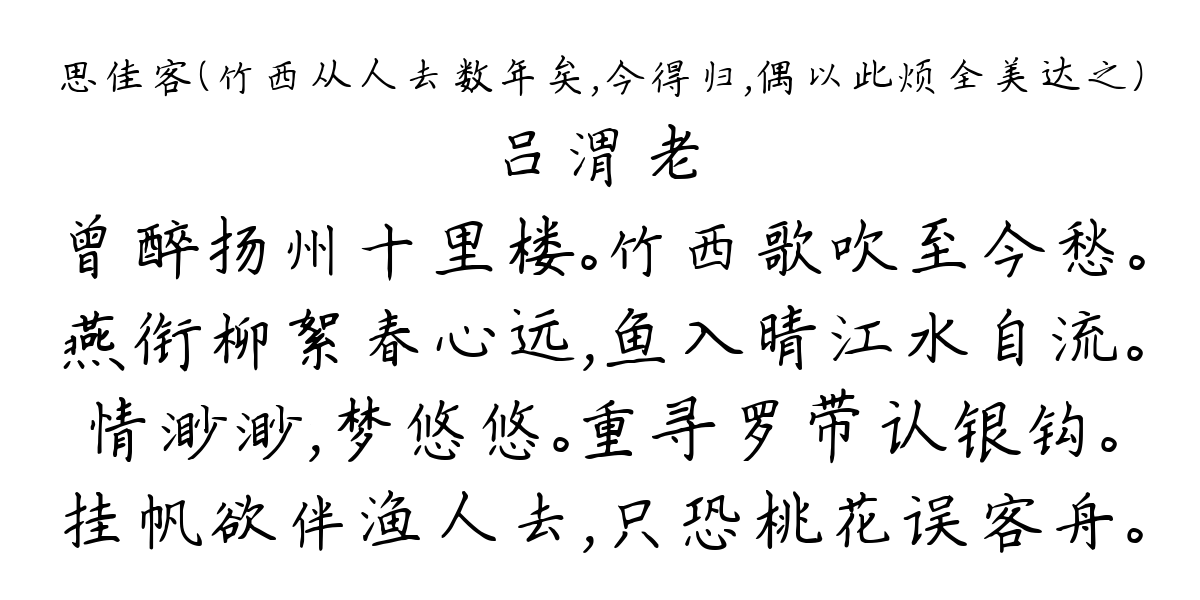 思佳客(竹西从人去数年矣,今得归,偶以此烦全美达之)
吕渭老
曾醉扬州十里楼。竹西歌吹至今愁。
燕衔柳絮春心远,鱼入晴江水自流。
情渺渺,梦悠悠。重寻罗带认银钩。
挂帆欲伴渔人去,只恐桃花误客舟。